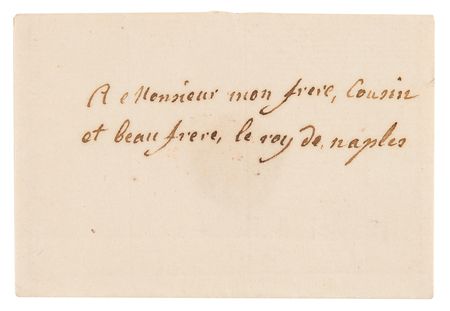 A Monsieur mon frere, Cousin
et beau frere, le roy de naples